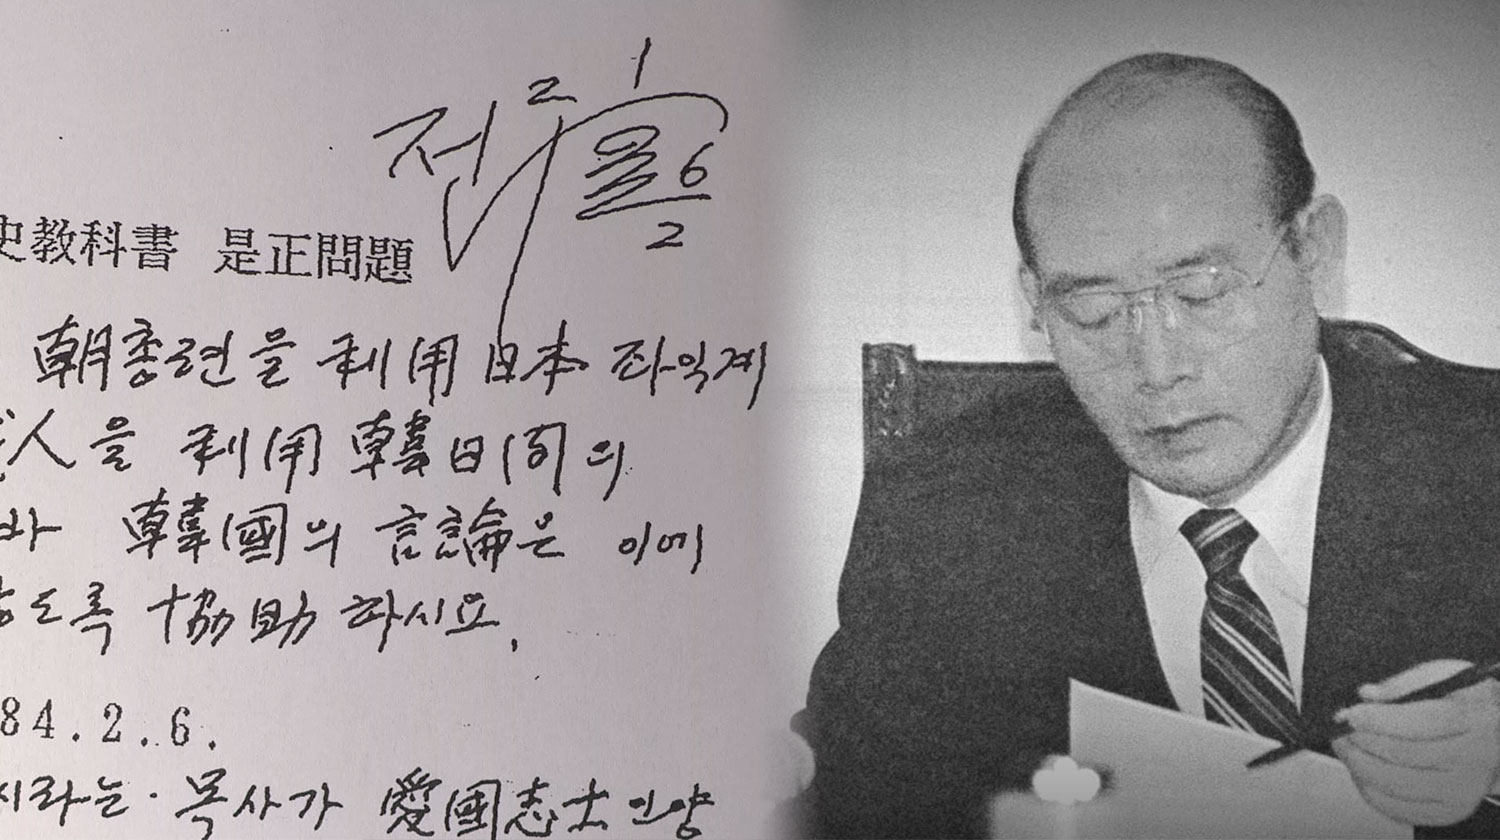 전
2 1
6
2
史教科書 是正問題
朝총련을 利用 日本 좌익계
人을 利用 韓日間의
바 韓國의 言論은 이에
도록 協助 하시요.
84.2.6.
시라는 목사가 愛國志士인양